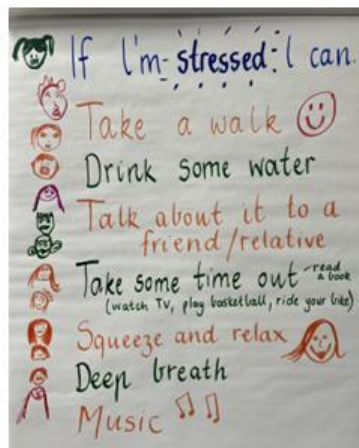 If I'm stressed: I can.
Take a walk
Drink some water
Talk about it to a
friend/relative
Take some time out - read
a book
(watch TV, play basketball, ride your bike)
Squeeze and relax
Deep breath
Music